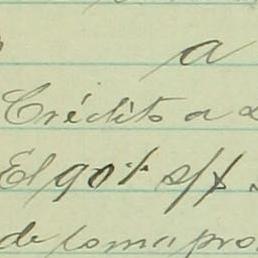 a
Crédito a
El 90% s/f
de loma pro